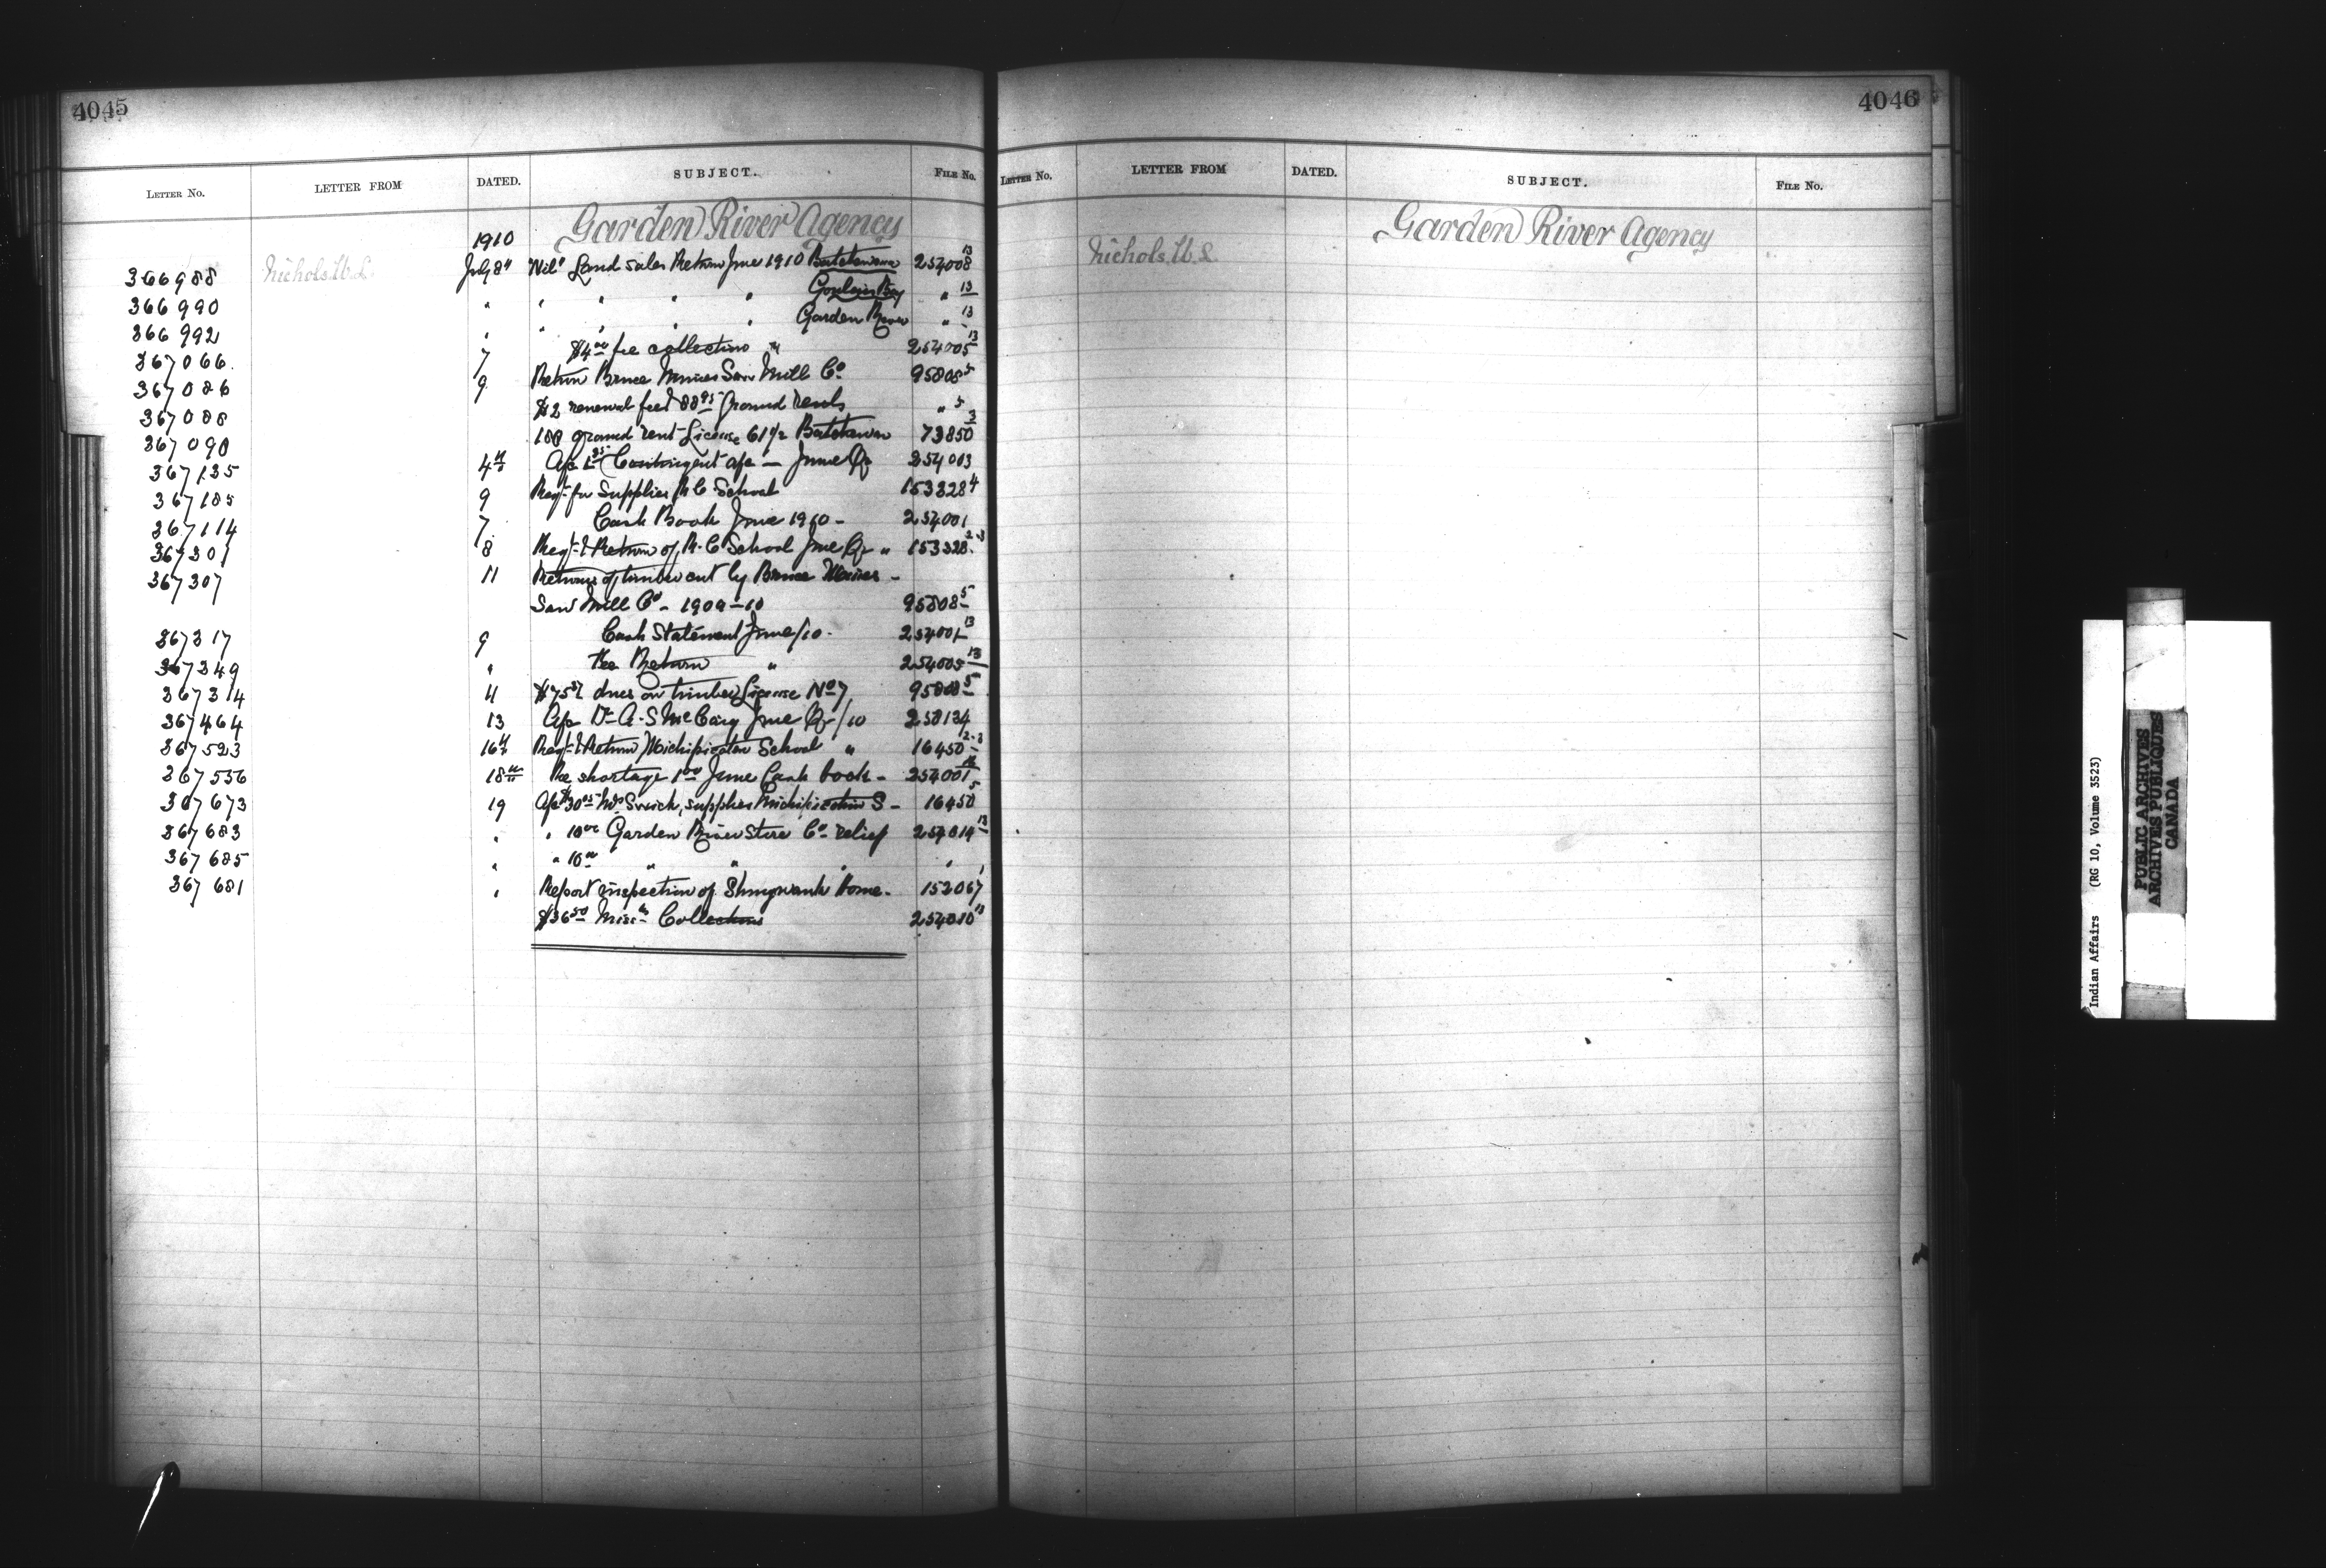 4045
LETTER NO. LETTER FROM DATED. SUBJECT. FILE NO.
Garden River Agency
1910
366988 Nichols, W. L. July 8" "Nil" Land Sales Return June 1910 Batchewana 254008 13
366990 " " " " " Goulais Bay " 13
366992 " " " " " Garden River " 13
367066 7 $4.00 fee collection " 254005 13
367086 9 Return Bruce Mines Saw Mill Co. 95808 5
367088 $2 renewal fee & 88.95 Ground Rents " 5
367090 100 ground rent License 61 1/2 Batchewana 73850 3
367135 4th Contingent a/c — June Qr 254003
367185 9 Reqt. for Supplies R C School 153328 4
367114 7 Cash Book June 1910 - 254001
367301 8 Reqt. & Return of R. C School June Qr " 153328 2-3
367307 11 Returns of timber cut by Bruce Mines -
Saw Mill Co - 1909-10 95808 5
367317 9 Cash Statement June/10 - 254001 13
367349 " Fee Return " 254005 13
367314 11 dues on timber License No 7 95808 5
367464 13 A/c Dr A. S McCaig June Qr/10 250134
367523 16th Reqt. & Return Michipicoten School " 16450 2-3
367556 18th Re shortage 1.00 June Cash book - 254001
367673 19 supplies Michipicoten S - 16450 5
367683 " " 10.00 Garden River Store Co - relief 254014 13
367685 " " 10.00 " " " "
367681 " Report inspection of Shingwauk Home - 152067 1
$36.50 Miss. Collections 254010 13
4046
LETTER NO. LETTER FROM DATED. SUBJECT. FILE NO.
Garden River Agency
Nichols, W. L.
Indian Affairs (RG 10, Volume 3523)
PUBLIC ARCHIVES
ARCHIVES PUBLIQUES
CANADA